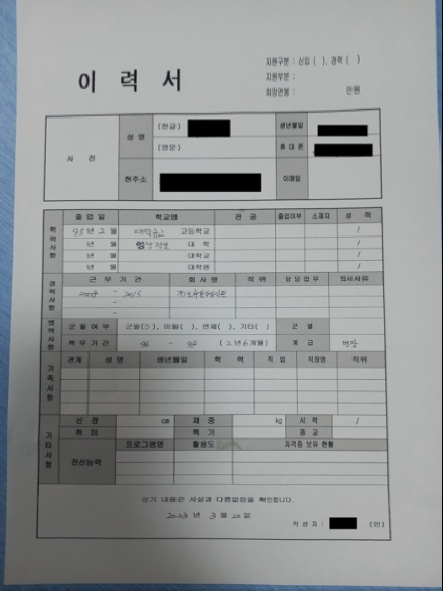 이 력 서
지원구분 : 신입 ( ), 경력 ( )
지원부분 :
희망연봉 : 만원
사 진
성 명 (한글) 생년월일
(영문) 휴대폰
현주소 이메일
학력사항
졸업일 학교명 전 공 졸업여부 소재지 성 적
95년 2월 고등학교 /
년 월 대 학 /
년 월 대학교 /
년 월 대학원 /
경력사항
근 무 기 간 회 사 명 직 위 담당업무 퇴사사유
- 2015
-
-
병역사항
군필여부 군필( ), 미필( ), 면제( ), 기타( ) 군 별
복무기간 96 - (2년6개월) 계 급 병장
가족사항
관계 성 명 생년월일 학 력 직 업 직장명 직위
기타사항
신 장 cm 체 중 kg 시 력 /
취 미 특 기 종 교
전산능력 프로그램명 활용도 자격증 보유 현황
상기 내용은 사실과 다름없음을 확인합니다.
2023년 3월 20일
작 성 자 : (인)